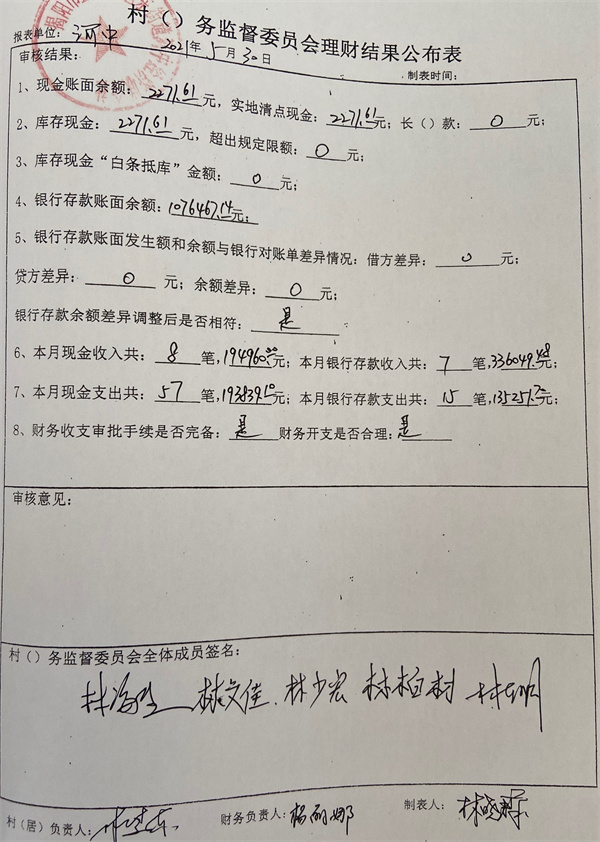 村（）务监督委员会理财结果公布表
报表单位：河中
2021年5月30日
制表时间：
审核结果：
1、现金账面余额：2271.61元，实地清点现金：2271.61元；长（）款：0元；
2、库存现金：2271.61元，超出规定限额：0元；
3、库存现金“白条抵库”金额：0元；
4、银行存款账面余额：1076467.14元；
5、银行存款账面发生额和余额与银行对账单差异情况：借方差异：0元；
贷方差异：0元；余额差异：0元；
银行存款余额差异调整后是否相符：是
6、本月现金收入共：8笔，194960.00元；本月银行存款收入共：7笔，336049.48元；
7、本月现金支出共：57笔，193839.10元；本月银行存款支出共：15笔，135251.70元；
8、财务收支审批手续是否完备：是 财务开支是否合理：是
审核意见：
村（）务监督委员会全体成员签名：
林文佳 林少宏 林柏树
村（居）负责人：
财务负责人：杨丽娜
制表人：林晓